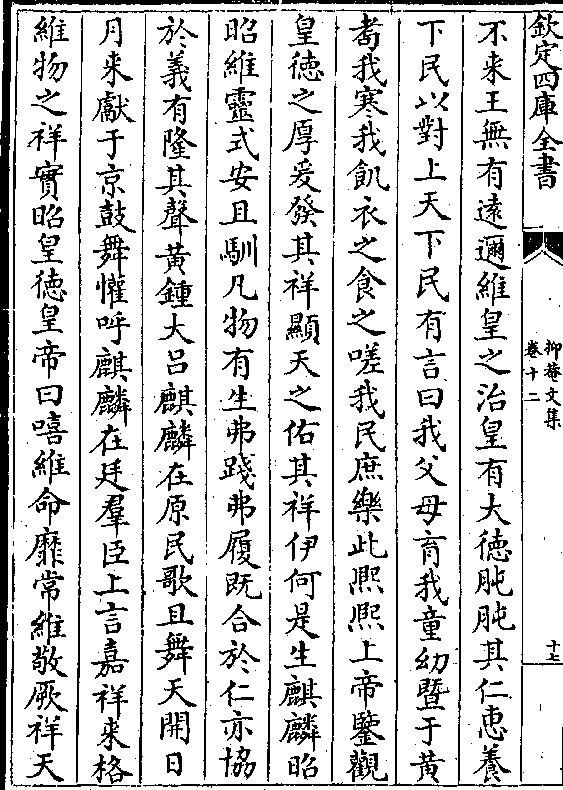 欽定四庫全書
抑菴文集
卷十二
十七
不来王無有逺邇維皇之治皇有大徳肫肫其仁惠養
下民以對上天下民有言曰我父母育我童幼暨于黄
耉我寒我飢衣之食之嗟我民庶樂此熈熈上帝鑒觀
皇徳之厚爰發其祥顯天之佑其祥伊何是生麒麟昭
昭維靈式安且馴凡物有生弗踐弗履既合於仁亦協
於義有隆其聲黄鍾大吕麒麟在原民歌且舞天開日
月来獻于京鼓舞懽呼麒麟在廷羣臣上言嘉祥来格
維物之祥實昭皇徳皇帝曰嘻維命靡常維敬厥祥天